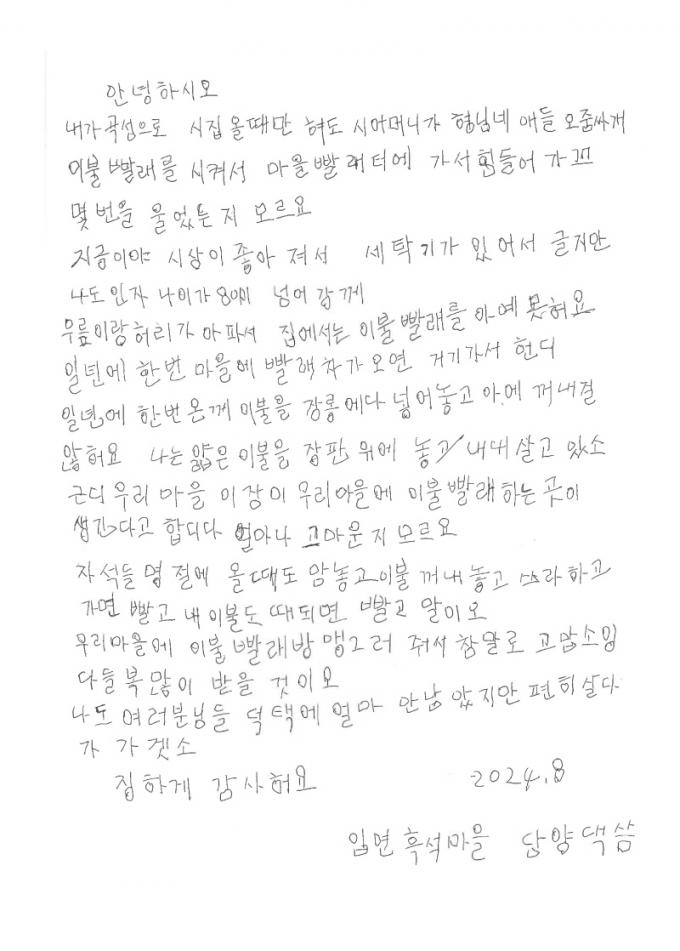 안녕하시오
내가 곡성으로 시집 올때만 혀도 시어머니가 형님네 애들 오줌싸개
이불 빨래를 시켜서 마을 빨래터에 가서 힘들어 가꼬
몇번을 울었는지 모르요
지금이야 시상이 좋아 져서 세탁기가 있어서 글지만
나도 인자 나이가 80이 넘어 감께
무릎이랑 허리가 아파서 집에서는 이불빨래를 아예 못혀요
일년에 한번 마을에 빨래차가 오면 거기가서 헌디
일년에 한번온께 이불을 장롱에다 넣어놓고 아에 꺼내질
않혀요 나는 얇은 이불을 장판 위에 놓고 내대 살고 있소
근디 우리 마을 이장이 우리마을에 이불빨래하는 곳이
생긴다고 합디다 얼마나 고마운지 모르요
자석들 명절에 올때도 암놓고 이불 꺼내놓고 쓰라하고
가면 빨고 내이불도 때되면 빨고 말이오
우리마을에 이불 빨래방 맹그러 줘서 참말로 고맙소잉
다들 복많이 받을 것이오
나도 여러분님들 덕택에 얼마 안남았지만 편히살다
가 가겟소
집하게 감사혀요 2024.8
입면 흑석마을 단양댁 씀